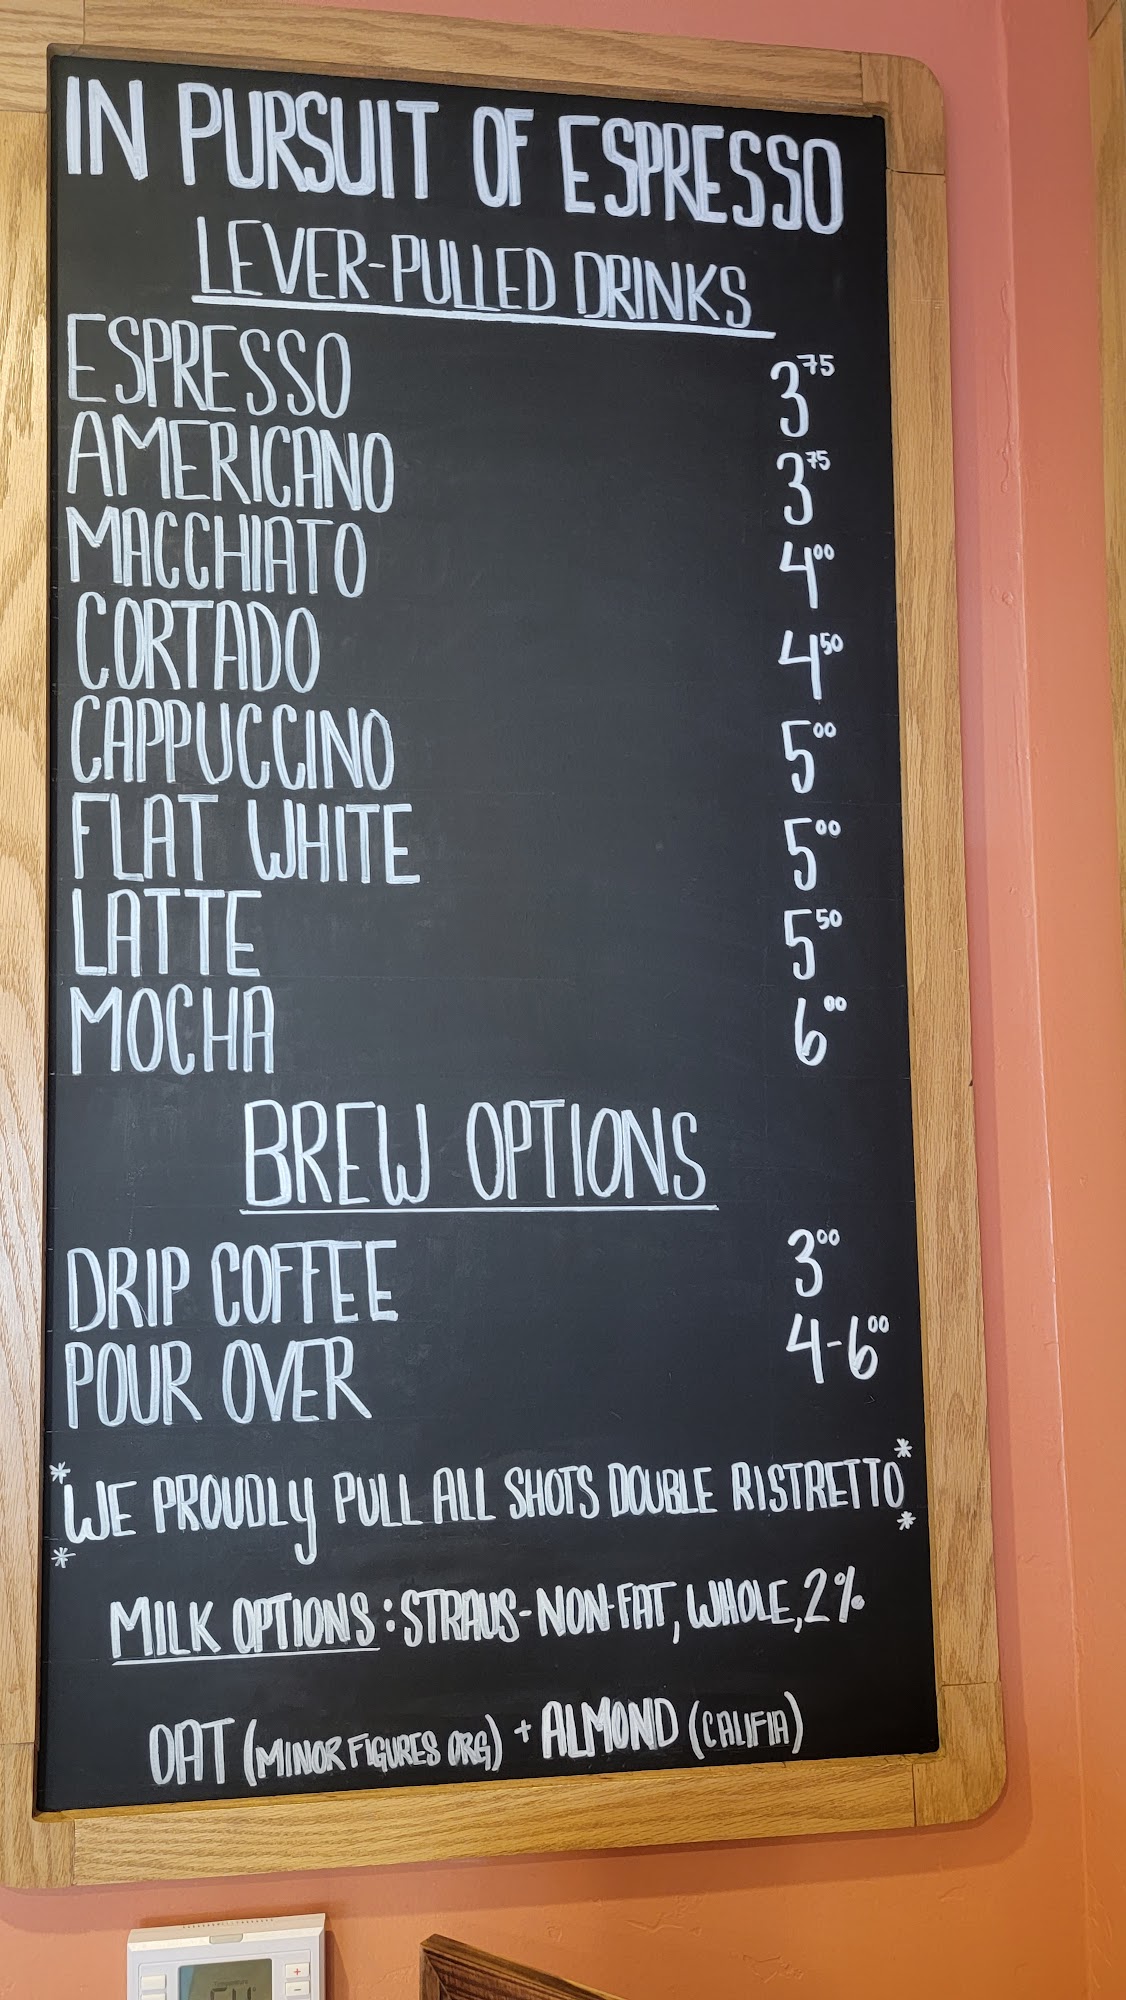 IN PURSUIT OF ESPRESSO
LEVER-PULLED DRINKS
ESPRESSO 3 75
AMERICANO 3 75
MACCHIATO 4 00
CORTADO 4 50
CAPPUCCINO 5 00
FLAT WHITE 5 00
LATTE 5 50
MOCHA 6 00
BREW OPTIONS
DRIP COFFEE 3 00
POUR OVER 4-6 00
*WE PROUDLY PULL ALL SHOTS DOUBLE RISTRETTO*
MILK OPTIONS: STRAUS-NON-FAT, WHOLE, 2%
OAT (MINOR FIGURES ORG) + ALMOND (CALIFIA)
Temperature